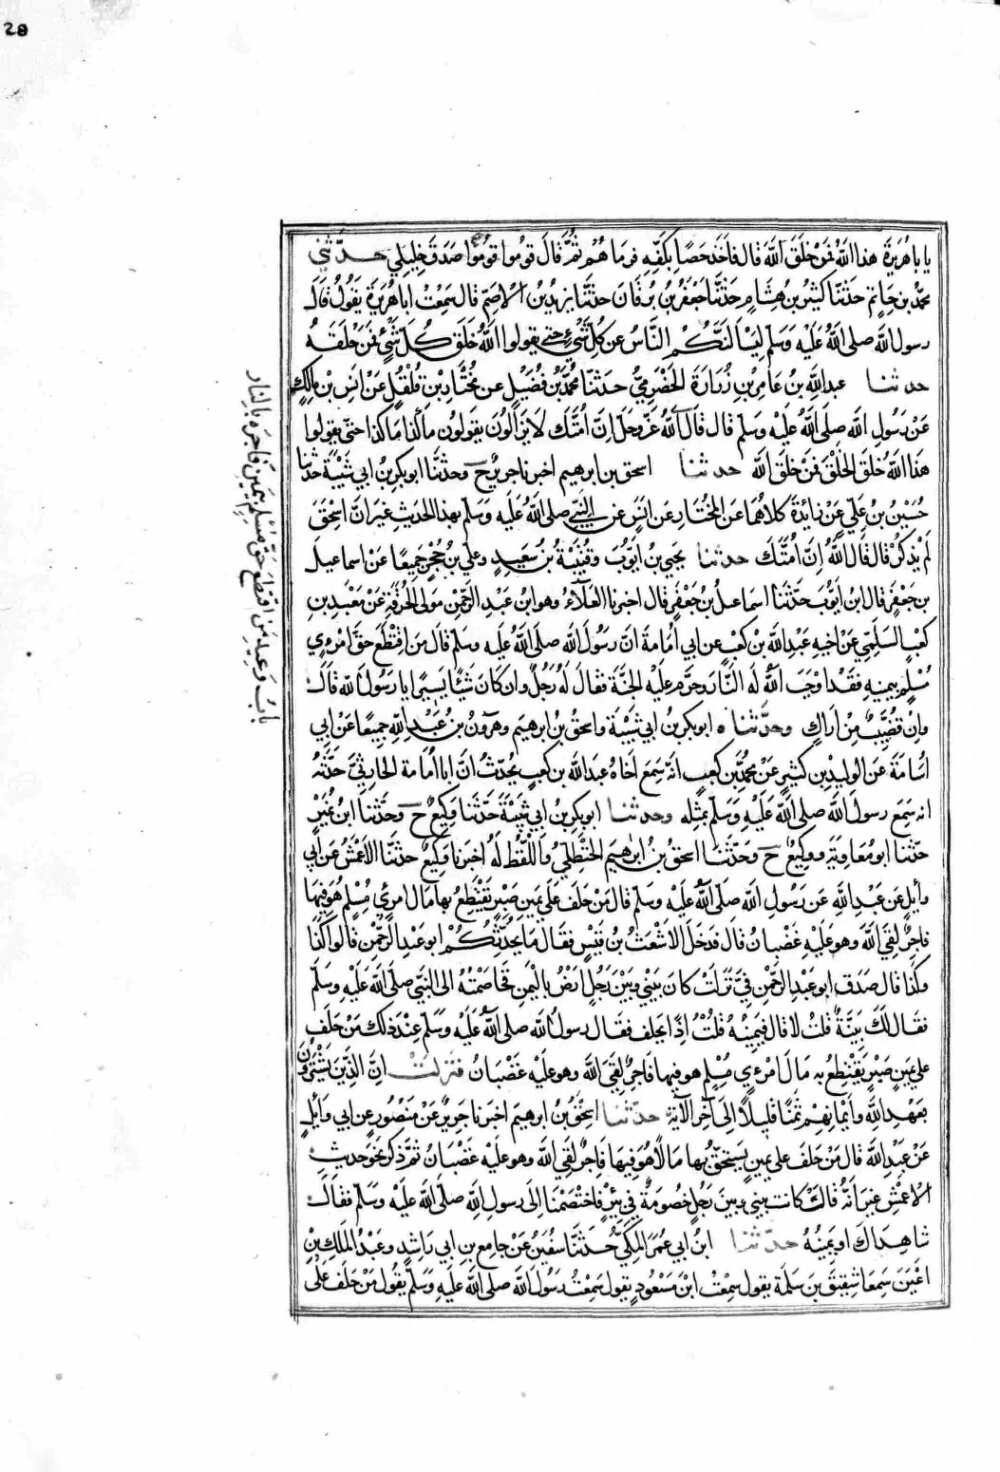 28
يا باهريرة هذا الله فمن خلق الله قال فاخذ حصا بكفه فرماهم ثم قال قوموا قوموا صدق خليلي حدثني
محمد بن حاتم حدثنا كثير بن هشام حدثنا جعفر بن برقان حدثنا يزيد بن الاصم قال سمعت ابا هريرة يقول قال
رسول الله صلى الله عليه وسلم ليسألنكم الناس عن كل شيء حتى يقولوا الله خلق كل شيء فمن خلقه
حدثنا عبد الله بن عامر بن زرارة الحضرمي حدثنا محمد بن فضيل عن مختار بن فلفل عن انس بن مالك
عن رسول الله صلى الله عليه وسلم قال قال الله عز وجل ان امتك لا يزالون يقولون ما كذا ما كذا حتى يقولوا
هذا الله خلق الخلق فمن خلق الله حدثنا اسحق بن ابرهيم اخبرنا جرير ح وحدثنا ابو بكر بن ابي شيبة حدثنا
حسين بن علي عن زائدة كلاهما عن المختار عن انس عن النبي صلى الله عليه وسلم بهذا الحديث غير ان اسحق
لم يذكر قال قال الله ان امتك حدثنا يحيى بن ايوب وقتيبة بن سعيد وعلي بن حجر جميعا عن اسماعيل
بن جعفر قال ابن ايوب حدثنا اسماعيل بن جعفر قال اخبرنا العلاء وهو ابن عبد الرحمن مولى الحرقة عن معبد بن
كعب السلمي عن اخيه عبد الله بن كعب عن ابي امامة ان رسول الله صلى الله عليه وسلم قال من اقتطع حق امرئ
مسلم بيمينه فقد اوجب الله له النار وحرم عليه الجنة فقال له رجل وان كان شيئا يسيرا يا رسول الله قال
وان قضيب من اراك وحدثناه ابو بكر بن ابي شيبة واسحق بن ابرهيم وهرون بن عبد الله جميعا عن ابي
اسامة عن الوليد بن كثير عن محمد بن كعب انه سمع اخاه عبد الله بن كعب يحدث ان ابا امامة الحارثي حدثه
انه سمع رسول الله صلى الله عليه وسلم بمثله وحدثنا ابو بكر بن ابي شيبة حدثنا وكيع ح وحدثنا ابن نمير
حدثنا ابو معاوية ووكيع ح وحدثنا اسحق بن ابرهيم الحنظلي واللفظ له اخبرنا وكيع حدثنا الاعمش عن ابي
وايل عن عبد الله عن رسول الله صلى الله عليه وسلم قال من حلف على يمين صبر يقتطع بها مال امرئ مسلم هو فيها
فاجر لقي الله وهو عليه غضبان قال فدخل الاشعث بن قيس فقال ما يحدثكم ابو عبد الرحمن قالوا كذا
وكذا قال صدق ابو عبد الرحمن في نزلت كان بيني وبين رجل ارض باليمن فخاصمته الى النبي صلى الله عليه وسلم
فقال لك بينة قلت لا قال فيمينه قلت اذا يحلف فقال رسول الله صلى الله عليه وسلم عند ذلك من حلف
على يمين صبر يقتطع به مال امرئ مسلم هو فيها فاجر لقي الله وهو عليه غضبان فنزلت ان الذين يشترون
بعهد الله وايمانهم ثمنا قليلا الى آخر الآية حدثنا اسحق بن ابرهيم اخبرنا جرير عن منصور عن ابي وايل
عن عبد الله قال من حلف على يمين يستحق بها مالا هو فيها فاجر لقي الله وهو عليه غضبان ثم ذكر نحو حديث
الاعمش غير انه قال كانت بيني وبين رجل خصومة في بئر فاختصمنا الى رسول الله صلى الله عليه وسلم فقال
شاهداك او يمينه حدثنا ابن ابي عمر المكي حدثنا سفين عن جامع بن ابي راشد وعبد الملك بن
اعين سمعا شقيق بن سلمة يقول سمعت ابن مسعود يقول سمعت رسول الله صلى الله عليه وسلم يقول من حلف على
باب وعيد من اقتطع حق مسلم بيمين فاجرة بالنار